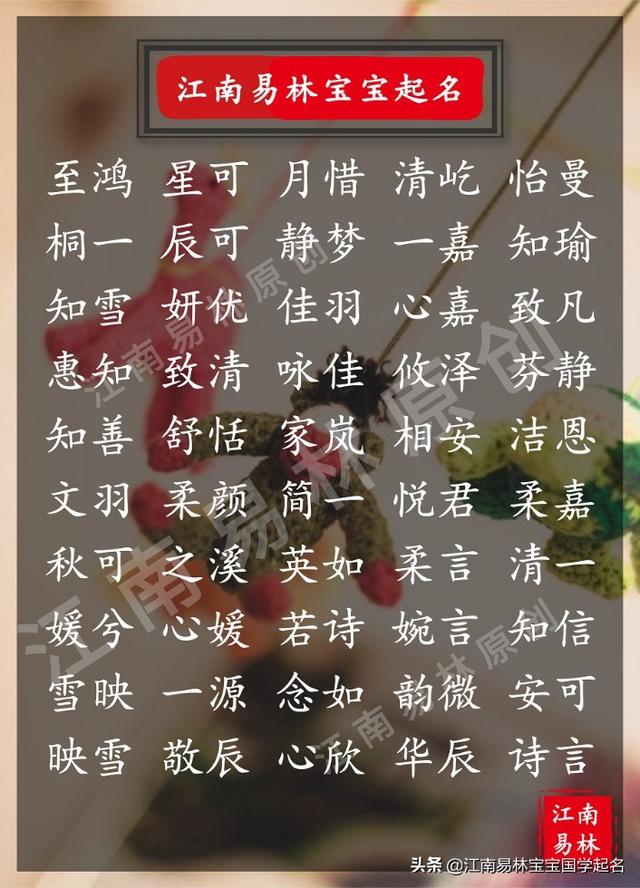 江南易林宝宝起名
至鸿 星可 月惜 清屹 怡曼
桐一 辰可 静梦 一嘉 知瑜
知雪 妍优 佳羽 心嘉 致凡
惠知 致清 咏佳 攸泽 芬静
知善 舒恬 家岚 相安 洁恩
文羽 柔颜 简一 悦君 柔嘉
秋可 之溪 英如 柔言 清一
媛兮 心媛 若诗 婉言 知信
雪映 一源 念如 韵微 安可
映雪 敬辰 心欣 华辰 诗言
江南易林原创
江南易林原创
江南易林原创
江南
易林
头条 @江南易林宝宝国学起名